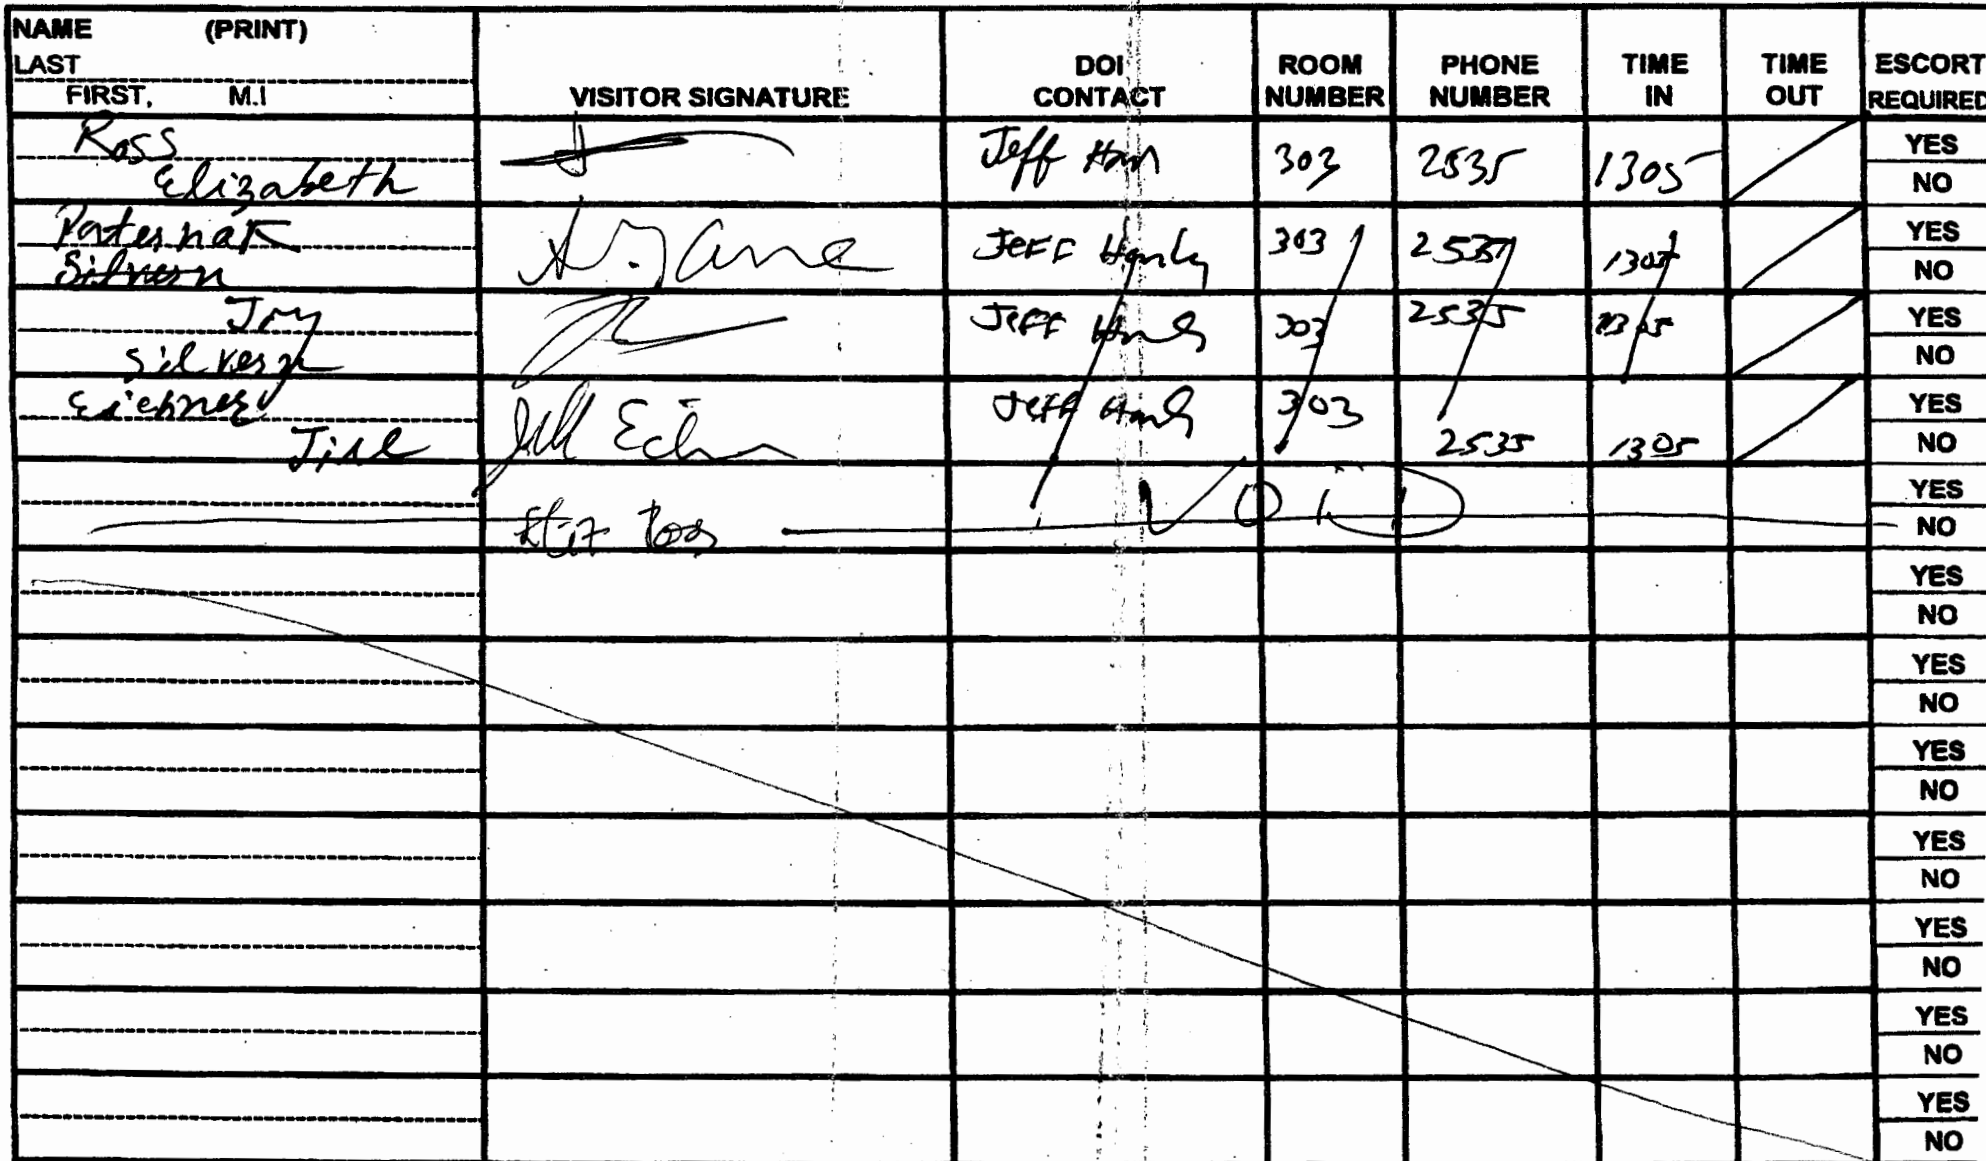 NAME (PRINT)
LAST
FIRST, M.I
VISITOR SIGNATURE
DOI CONTACT
ROOM NUMBER
PHONE NUMBER
TIME IN
TIME OUT
ESCORT REQUIRED
Ross
Elizabeth
Jeff 303 2535 1305
YES
NO
Paternak
Silvern
Jane
Jeff 303 2535 1305
YES
NO
Joy
Silvern
Jeff 303 2535 1305
YES
NO
Eichner
Jill
Jill
Jeff 303 2535 1305
YES
NO
VOID
YES
NO
YES
NO
YES
NO
YES
NO
YES
NO
YES
NO
YES
NO
YES
NO